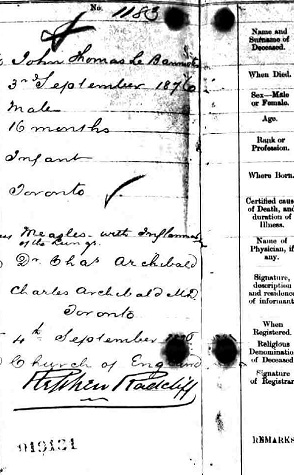 No. 1183
John Thomas Le
Name and Surname of Deceased.
3rd September 1876
When Died.
Male
Sex—Male or Female.
16 months
Age.
Infant
Rank or Profession.
Toronto
Where Born.
Measles with
of the Lungs.
Certified cause of Death, and duration of Illness.
Dr. Chas Archibald
Name of Physician, if any.
Charles Archibald M.D.
Toronto
Signature, description and residence of informant
4th September
When Registered.
Church of England
Religious Denomination of Deceased
Stephen Radcliff
Signature of Registrar
REMARKS